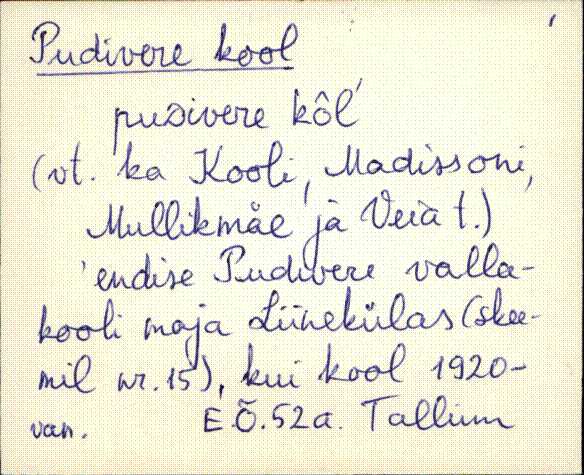 Pudivere kool
puDivere kôl'
(vt. ka Kooli, Madissoni,
Mullikmäe ja Veia t.)
'endise Pudivere valla-
kooli maja Liinekülas (skee-
mil nr. 15), kui kool 1920-
van. E.Õ. 52 a. Tallinn